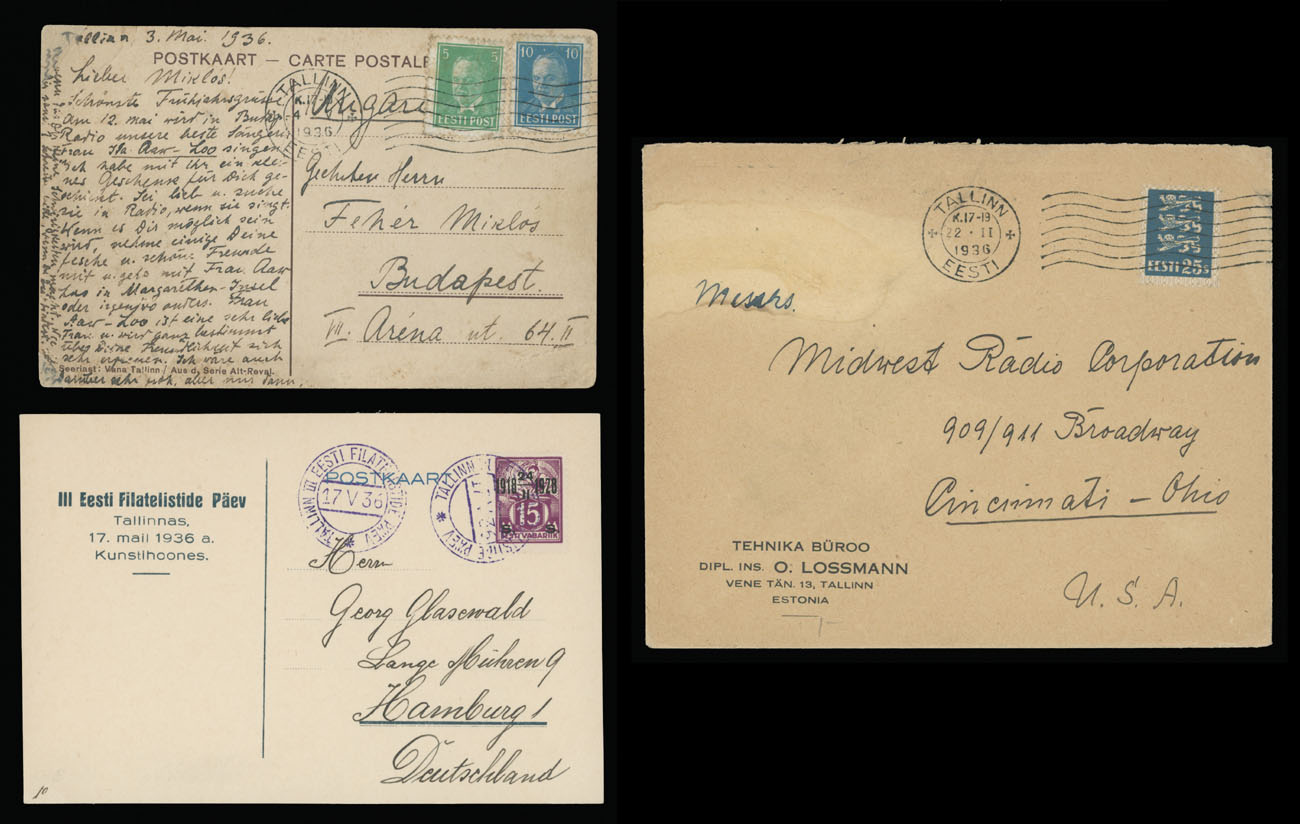 Tallinn, 3. Mai. 1936.
POSTKAART — CARTE POSTALE
Lieber Miklós!
Schönste Frühjahrsgrüsse
Am 12. mai wird in Budap.
Radio unsere beste Sängerin
Frau Ida Aaw-Loo singen,
ich habe mit ihr ein klei-
nes Geschenk für Dich ge-
schickt. Sei lieb u. suche
sie in Radio, wenn sie singt.
Wenn es Dir möglich sein
wird, nehme einige Deine
fesche u. schön. Freunde
mit u. gehe mit Frau Aaw
Loo in Margarethen-Insel
oder irgendwo anders. Frau
Aaw-Loo ist eine sehr liebe
Frau u. wird ganz bestimmt
über Deine Freundlichkeit sich
sehr erfreuen. Ich wäre auch
Seeriast: Vana Tallinn / Aus d. Serie Alt-Reval.
darüber sehr froh, aber nur dann,
5 5
EESTI POST
10 10
EESTI POST
TALLINN
K.17
4
1936
EESTI
Ungarn
Geehrten Herrn
Fehér Miklós
Budapest.
VII. Aréna ut. 64. II
III Eesti Filatelistide Päev
Tallinnas,
17. mail 1936 a.
Kunstihoones.
POSTKAART
TALLINN III EESTI FILATELISTIDE PÄEV
17 V 36
TALLINN III
PÄEV
1918 24 II 1928
15
EESTI VABARIIK
Herrn
Georg Glasewald
Lange Mühren 9
Hamburg 1
Deutschland
10
TALLINN
K.17-19
22 · II
1936
EESTI
EESTI 25 s
Messrs.
Midwest Radio Corporation
909/911 Broadway
Cincinnati – Ohio
U. S. A.
TEHNIKA BÜROO
DIPL. INS. O. LOSSMANN
VENE TÄN. 13, TALLINN
ESTONIA